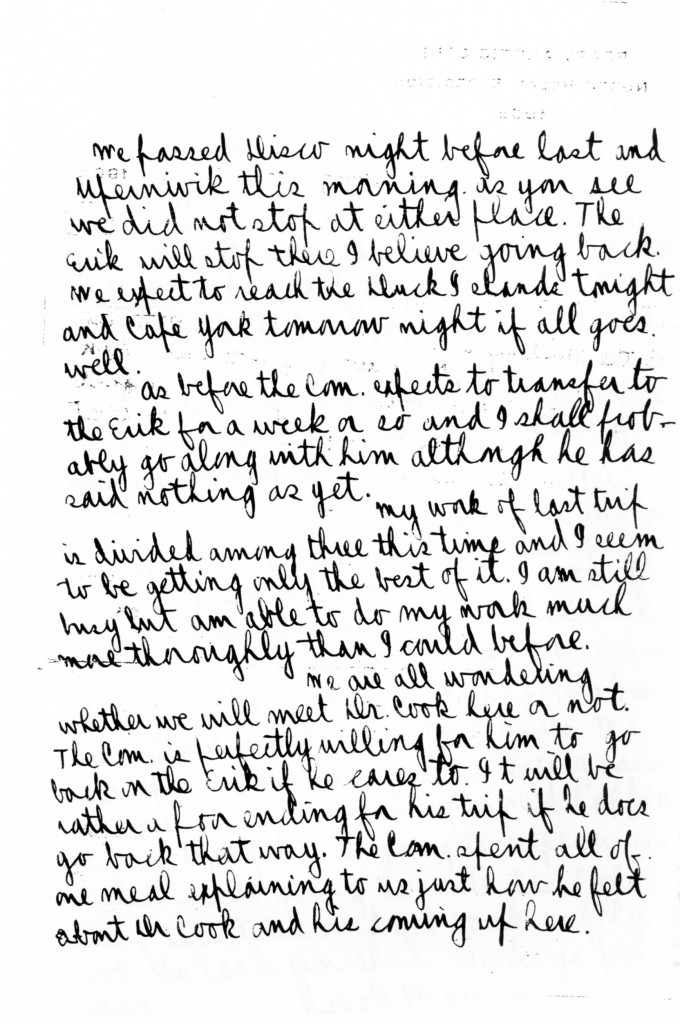 We passed Disco night before last and
Upernivik this morning. As you see
we did not stop at either place. The
Erik will stop there I believe going back.
We expect to reach the Duck Islands tonight
and Cape York tomorrow night if all goes
well.
As before the Com. expects to transfer to
the Erik for a week or so and I shall prob-
ably go along with him although he has
said nothing as yet.
My work of last trip
is divided among three this time and I seem
to be getting only the best of it. I am still
busy but am able to do my work much
more thoroughly than I could before.
We are all wondering
whether we will meet Dr. Cook here or not.
The Com. is perfectly willing for him to go
back on the Erik if he cares to. It will be
rather a poor ending for his trip if he does
go back that way. The Com. spent all of
one meal explaining to us just how he felt
about Dr. Cook and his coming up here.